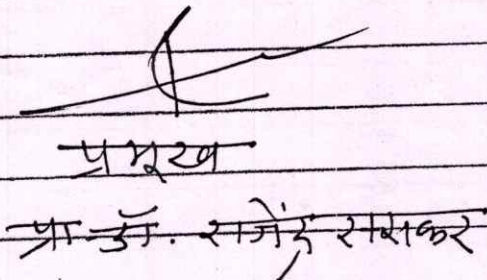 प्रमूख
प्रा डॉ. राजेंद्र रासकर